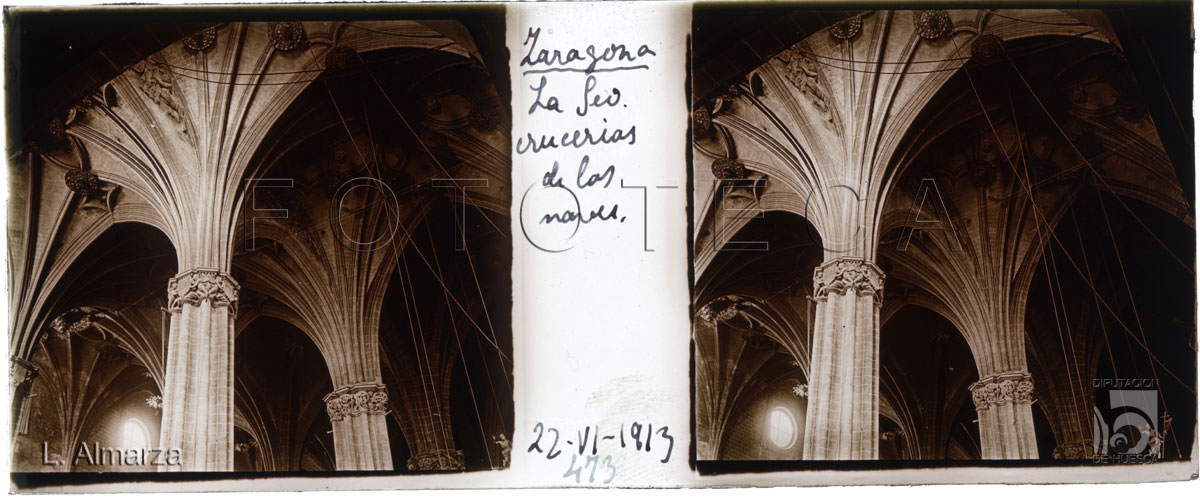 Zaragoza
La Seo.
crucerias
de las
naves.
FOTOTECA
22-VI-1913
473
L. Almarza
DIPUTACION
DE HUESCA